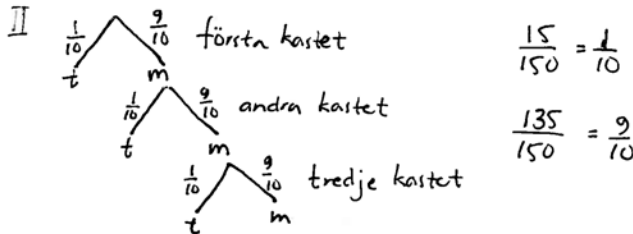 II
1/10 9/10 första kastet
t m
1/10 9/10 andra kastet
t m
1/10 9/10 tredje kastet
t m
15/150 = 1/10
135/150 = 9/10